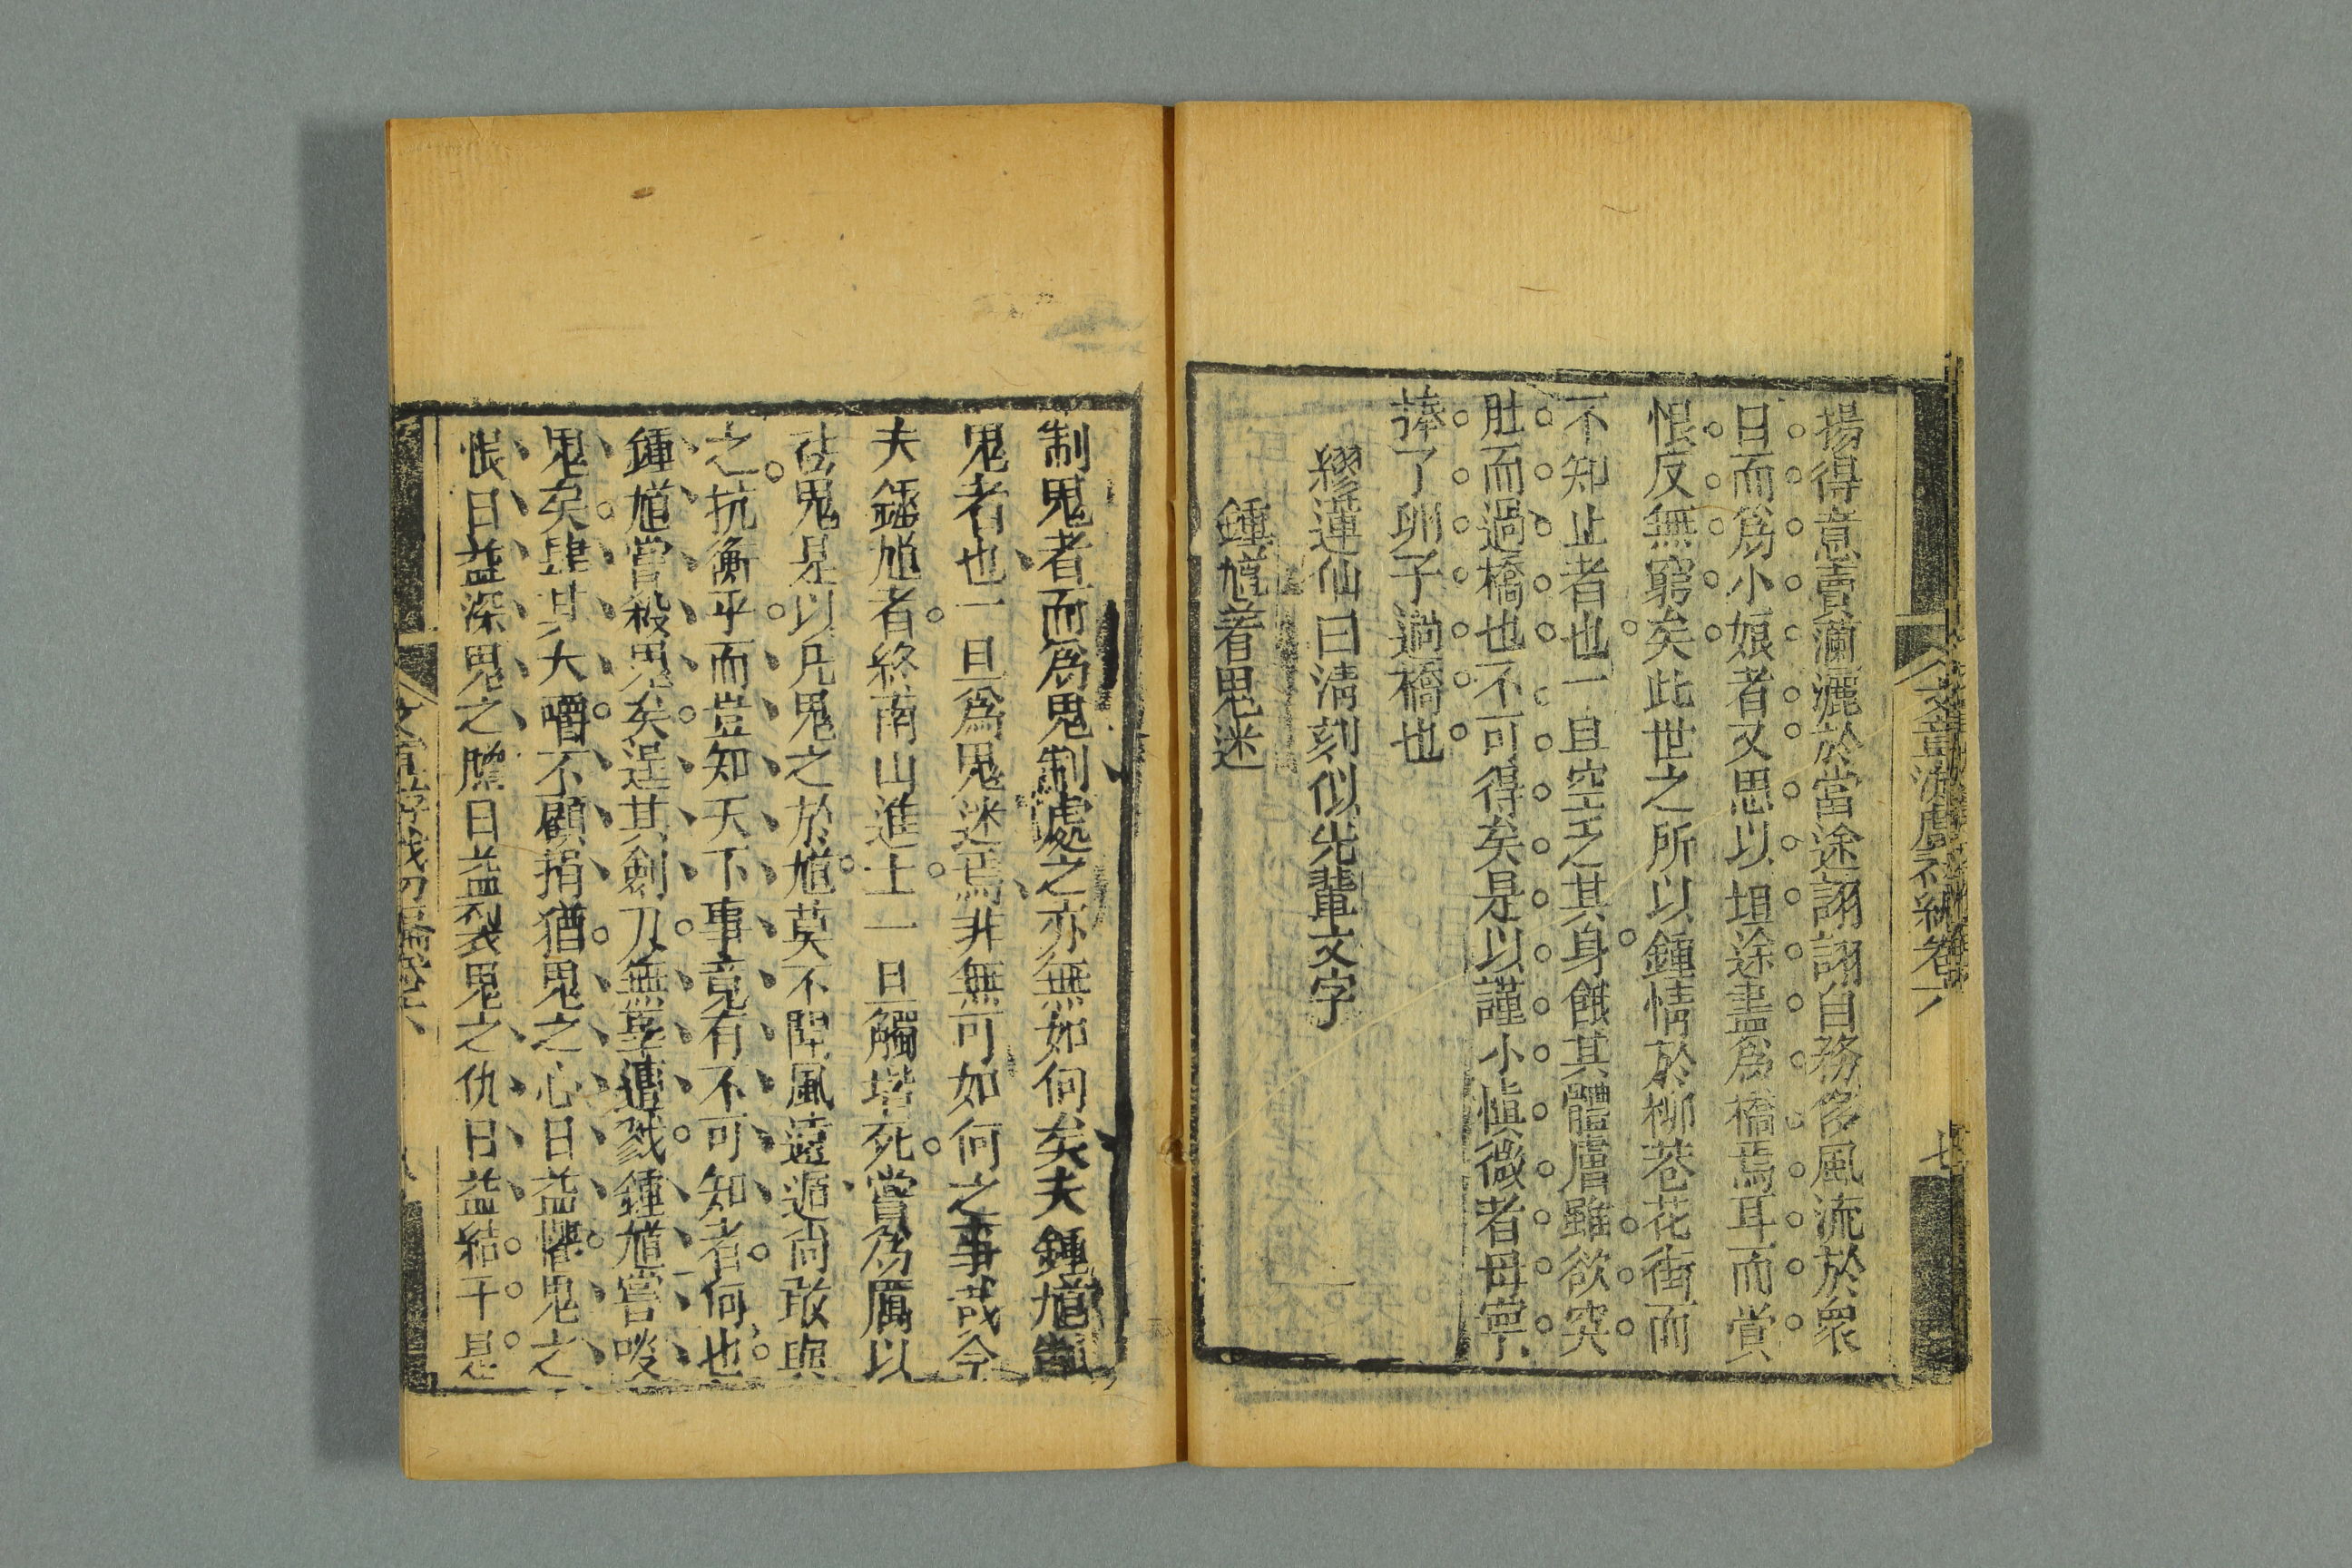 揚得意賣瀾灑於當途詡詡自務多風流於衆
日而爲小娘者又思以坦途盡爲橋焉耳而賞
恨反無窮矣此世之所以鍾情於柳巷花街而
不知止者也一旦空乏其身餓其體膚雖欲突
肚而過橋也不可得矣是以謹小愼微者毋寧
捧了卵子過橋也
繆蓮仙曰淸刻似先輩文字
鍾馗着鬼迷
文章游戲初編卷六
七
制鬼者而爲鬼制處之亦無如何矣夫鍾馗制
鬼者也一旦爲鬼迷焉非無可如何之事哉今
夫鍾馗者終南山進士一旦觸堦死嘗爲厲以
祛鬼是以凡鬼之於馗莫不聞風遠遁尙敢與
之抗衡乎而豈知天下事竟有不可知者何也
鍾馗嘗殺鬼矣逞其劍刀無辜遭戮鍾馗嘗啖
鬼矣肆其大嚼不顧捐猶鬼之心日益懼鬼之
恨日益深鬼之膽日益裂鬼之仇日益結于是